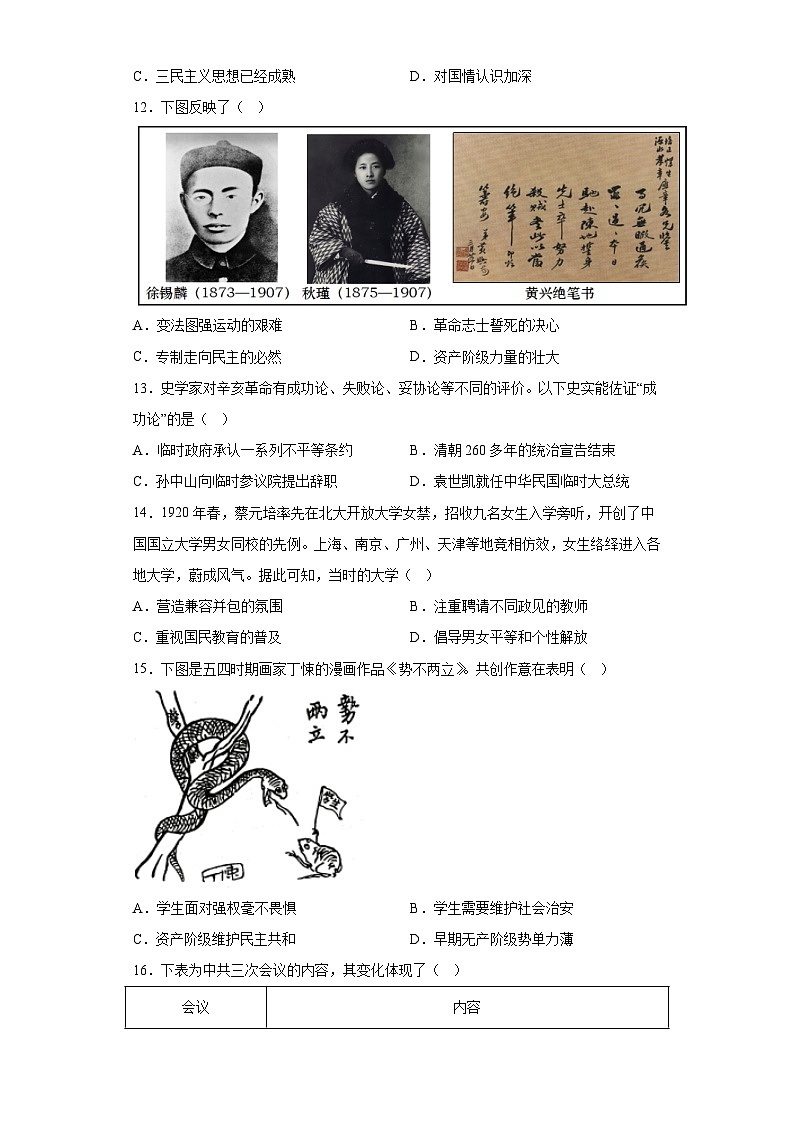 C．三民主义思想已经成熟 D．对国情认识加深
12．下图反映了（ ）
徐锡麟（1873—1907） 秋瑾（1875—1907） 黄兴绝笔书
A．变法图强运动的艰难 B．革命志士誓死的决心
C．专制走向民主的必然 D．资产阶级力量的壮大
13．史学家对辛亥革命有成功论、失败论、妥协论等不同的评价。以下史实能佐证“成
功论”的是（ ）
A．临时政府承认一系列不平等条约 B．清朝 260 多年的统治宣告结束
C．孙中山向临时参议院提出辞职 D．袁世凯就任中华民国临时大总统
14．1920 年春，蔡元培率先在北大开放大学女禁，招收九名女生入学旁听，开创了中
国国立大学男女同校的先例。上海、南京、广州、天津等地竞相仿效，女生络绎进入各
地大学，蔚成风气。据此可知，当时的大学（ ）
A．营造兼容并包的氛围 B．注重聘请不同政见的教师
C．重视国民教育的普及 D．倡导男女平等和个性解放
15．下图是五四时期画家丁悚的漫画作品《势不两立》。共创作意在表明（ ）
势不
两立
学生
A．学生面对强权毫不畏惧 B．学生需要维护社会治安
C．资产阶级维护民主共和 D．早期无产阶级势单力薄
16．下表为中共三次会议的内容，其变化体现了（ ）
会议 内容